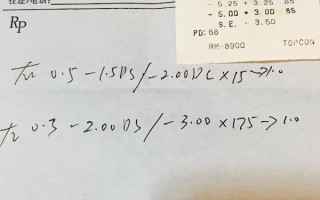 Rp
- 5.25 + 3.25 85
- 5.00 + 3.00 85
S.E. - 3.50
PD: 68
RM-8900 TOPCON
右 0.5 -1.5DS/-2.00DC×15→1.0
左 0.3 -2.00DS/-3.00×175→1.0